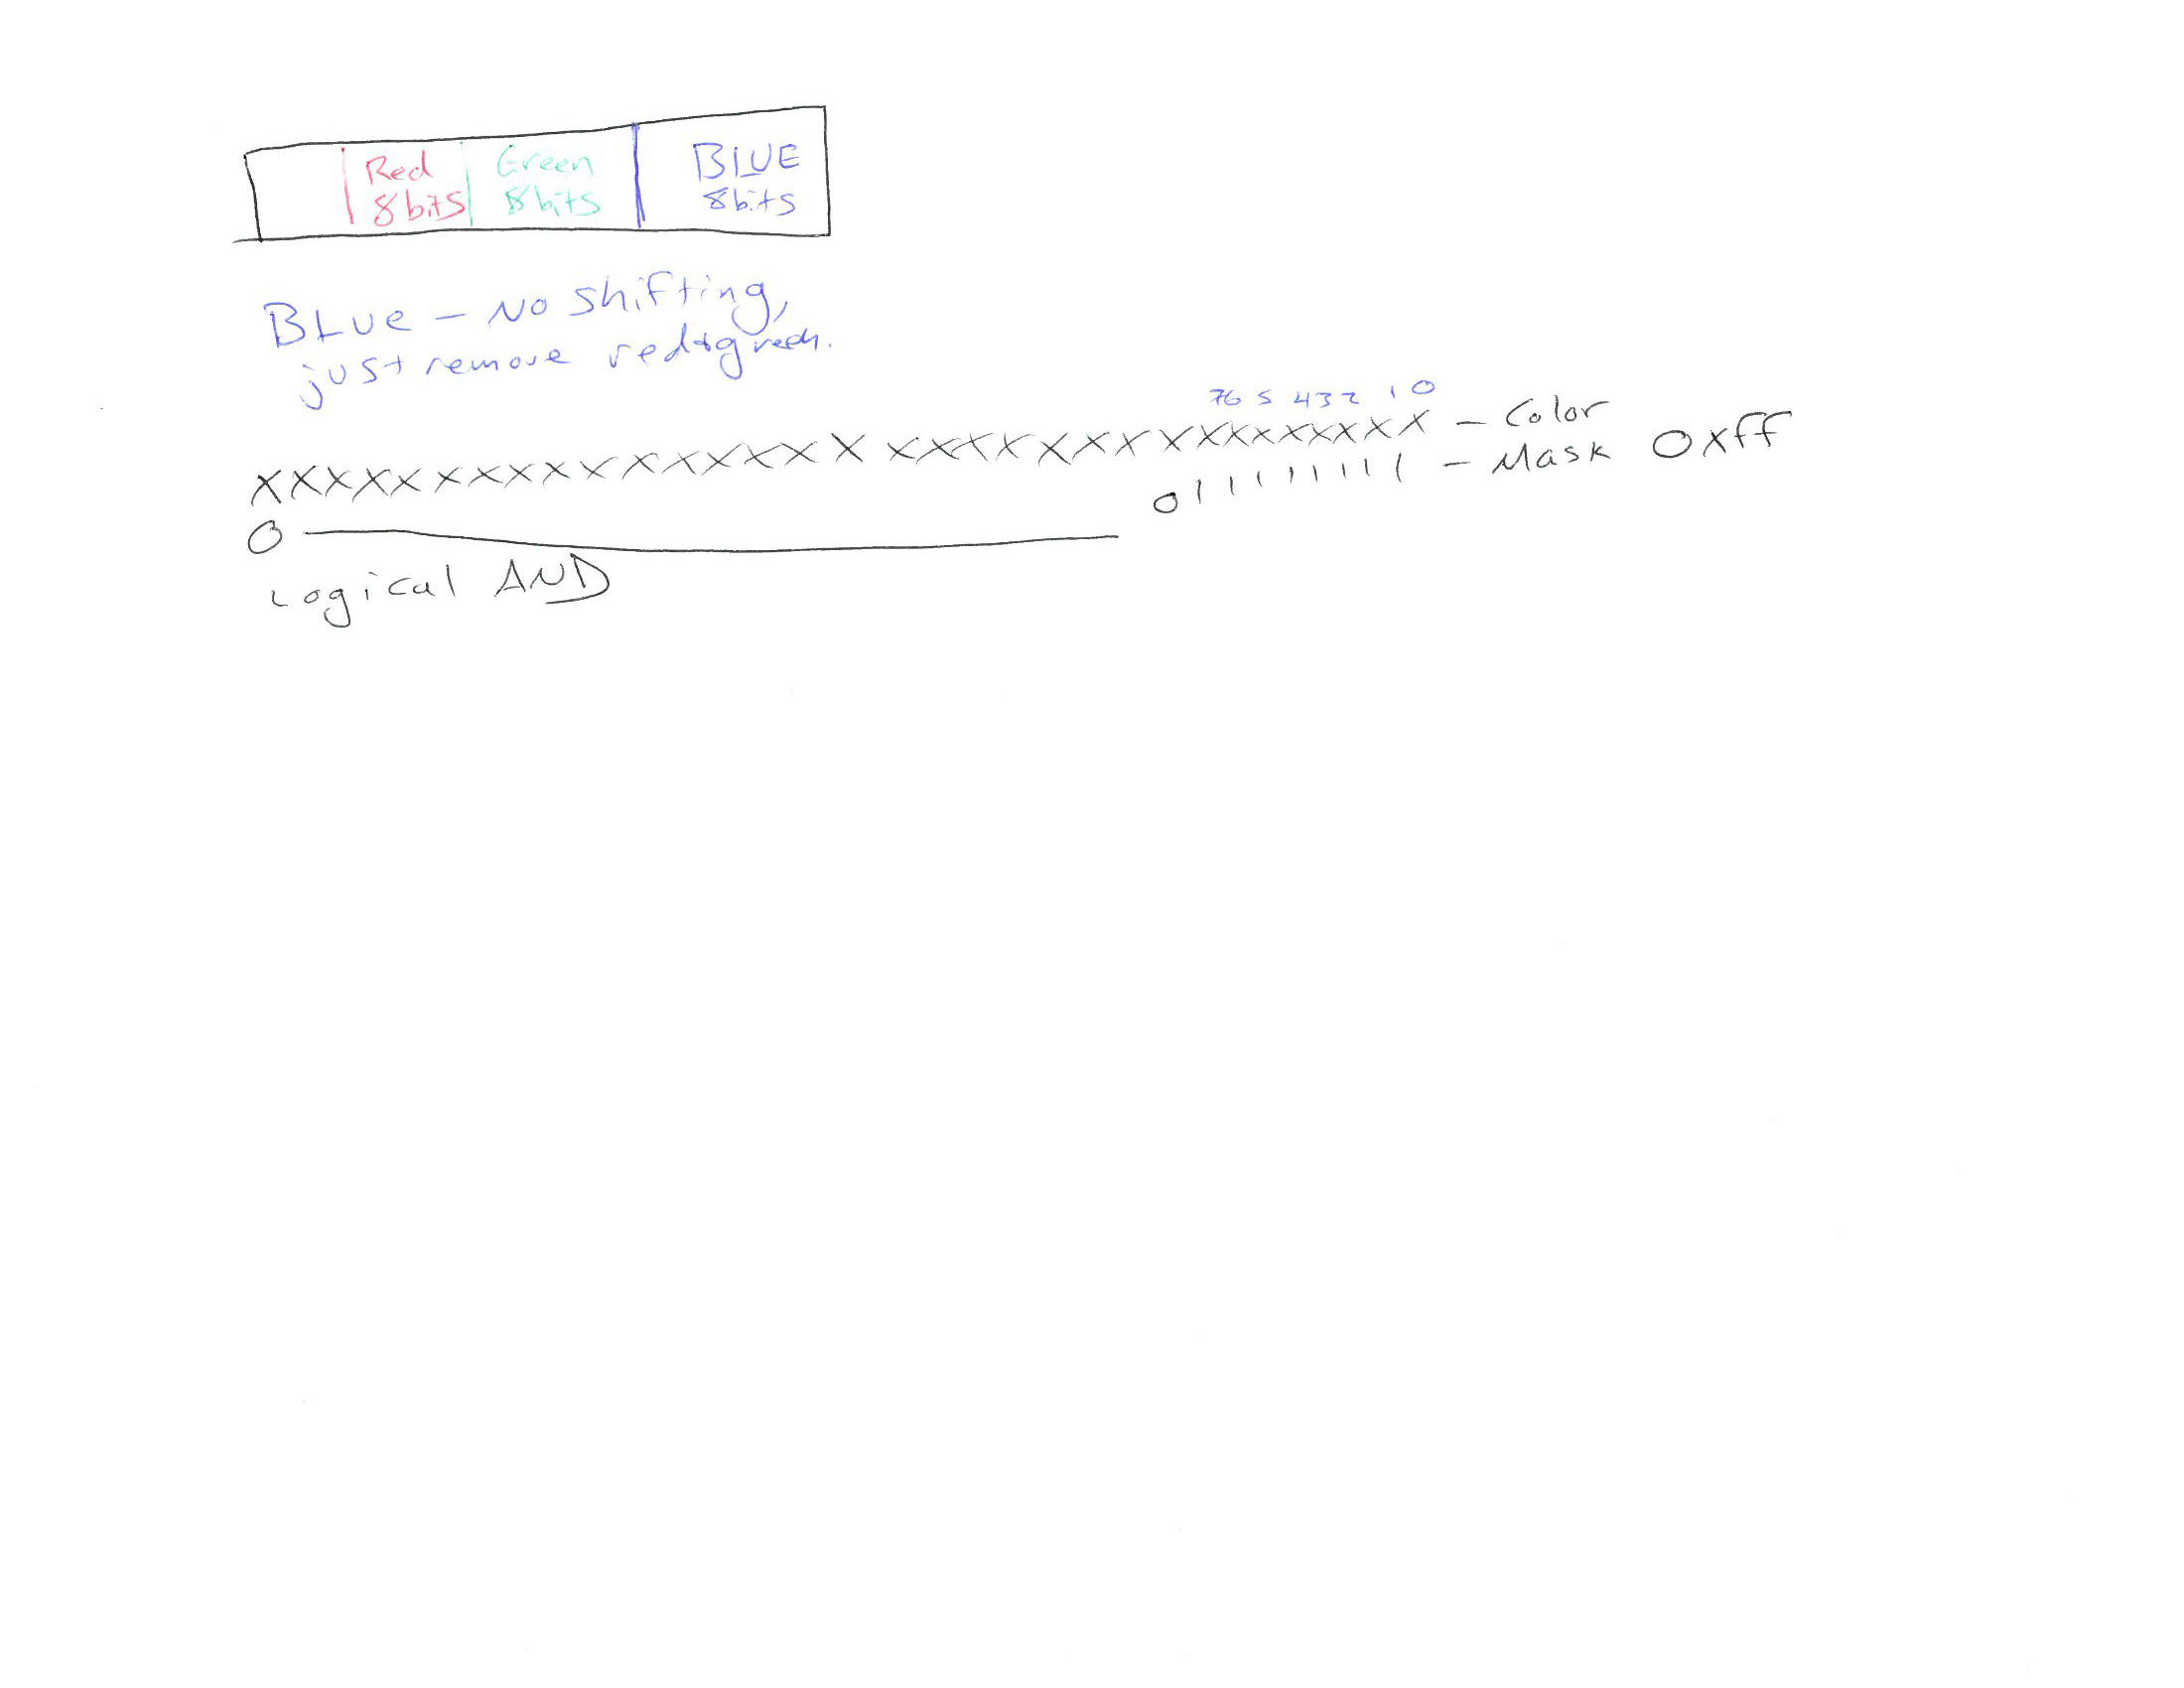 Red Green BLUE
8bits 8bits 8bits
BLue - No shifting,
just remove red+green.
7 6 5 4 3 2 1 0
XXXXXXXXXXXXXXXX XXXXXXXXXXXXXXXX - Color
0 011111111 - Mask 0xff
Logical AND